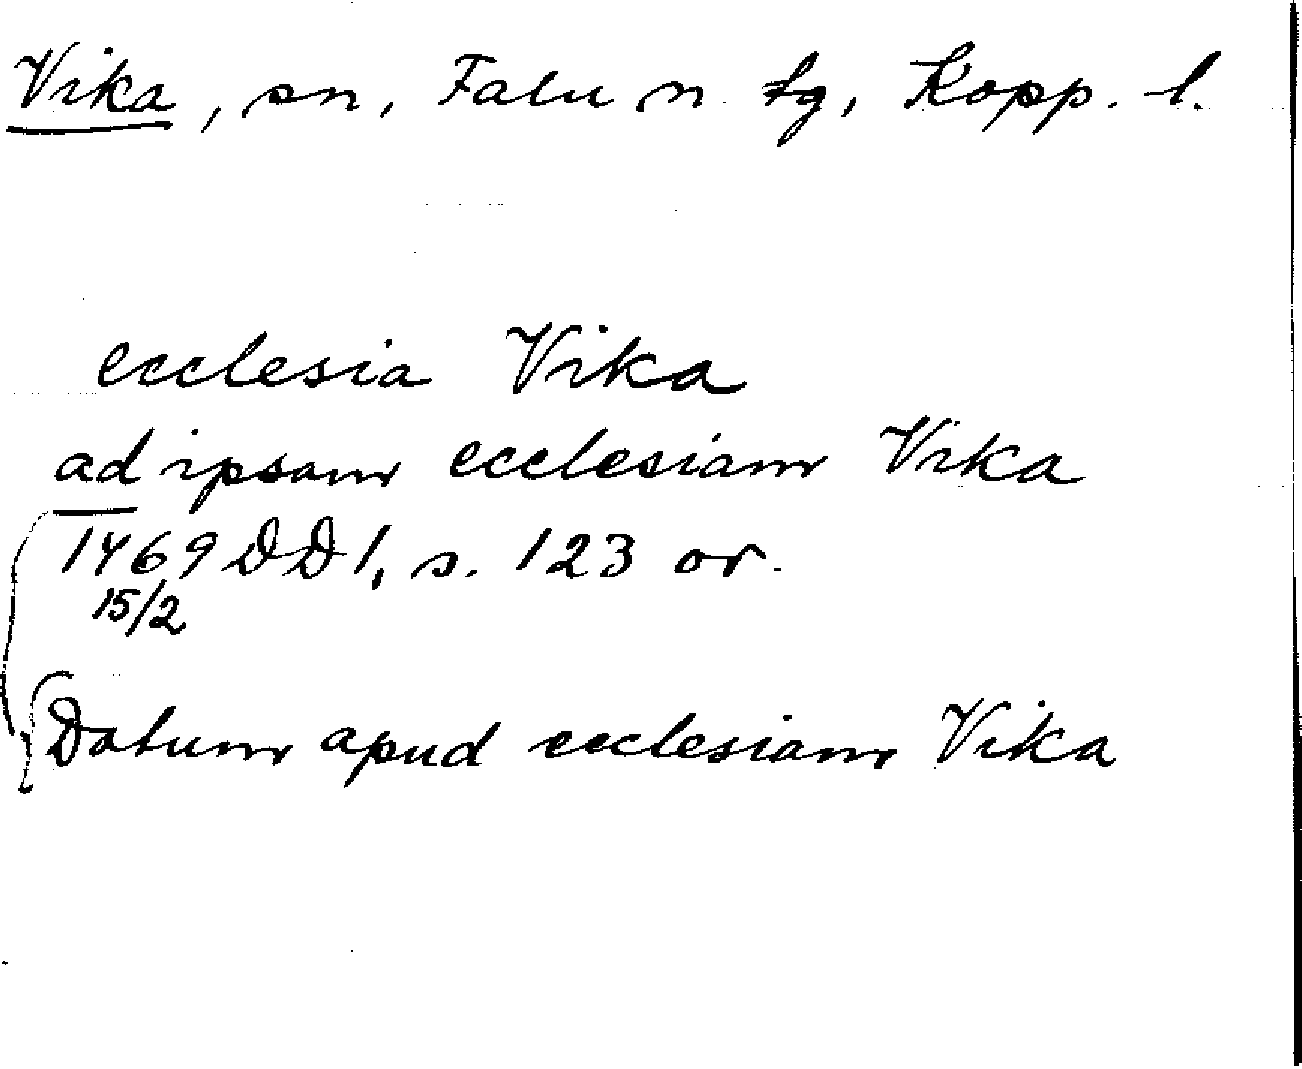 Vika, sn, Falu n. tg, Kopp. l.
ecclesia Vika
ad ipsam ecclesiam Vika
1469 DD 1, s. 123 or.
15/2
Datum apud ecclesiam Vika